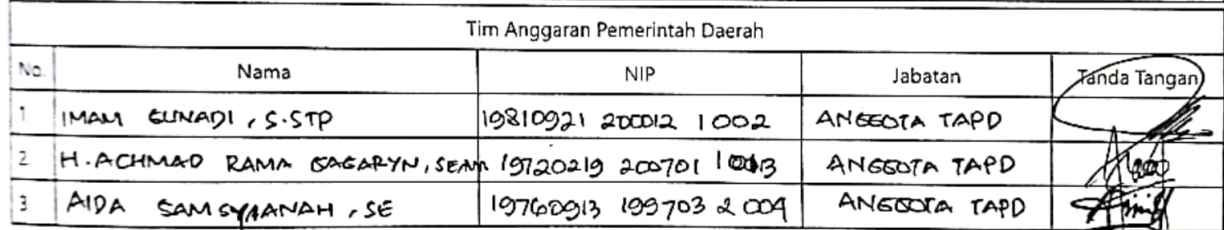 Tim Anggaran Pemerintah Daerah
No. Nama NIP Jabatan Tanda Tangan
1 IMAM GUNADI, S.STP 19810921 200012 1 002 ANGGOTA TAPD
2 H. ACHMAD RAMA GAGARYN, SE.MM 19720219 200701 1 013 ANGGOTA TAPD
3 AIDA SAMSYIANAH, SE 19760913 199703 2 004 ANGGOTA TAPD